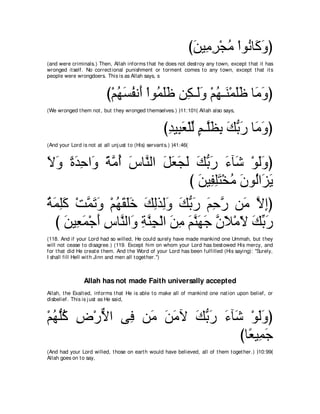 (وَكَانُواْ مُجْرِمِينَ)
(and were criminals.) Then, Allah informs that he does not destroy any town, except that it has
wronged itself. No correctional punishment or torment comes to any town, except that its
people were wrongdoers. This is as Allah says,
(وَمَا ظَلَمْنَـهُمْ وَلَـكِن ظَلَمُواْ أَنفُسَهُمْ)
(We wronged them not, but they wronged themselves.) (11:101( Allah also says,
(وَمَا رَبُّكَ بِظَلَّـمٍ لِّلْعَبِيدِ)
(And your Lord is not at all unjust to (His) servants.) )41:46(
(وَلَوْ شَآءَ رَبُّكَ لَجَعَلَ النَّاسَ أُمَّةً وَاحِدَةً وَلاَ
يَزَالُونَ مُخْتَلِفِينَ )
(إِلاَّ مَن رَّحِمَ رَبُّكَ وَلِذلِكَ خَلَقَهُمْ وَتَمَّتْ كَلِمَةُ
رَبِّكَ لاَمْلاَنَّ جَهَنَّمَ مِنَ الْجِنَّةِ وَالنَّاسِ أَجْمَعِينَ )
(118. And if your Lord had so willed, He could surely have made mankind one Ummah, but they
will not cease to disagree.) (119. Except him on whom your Lord has bestowed His mercy, and
for that did He create them. And the Word of your Lord has been fulfilled (His saying): "Surely,
I shall fill Hell with Jinn and men all together.")
Allah has not made Faith universally accepted
Allah, the Exalted, informs that He is able to make all of mankind one nation upon belief, or
disbelief. This is just as He said,
(وَلَوْ شَآءَ رَبُّكَ لآمَنَ مَن فِى الاٌّرْضِ كُلُّهُمْ
جَمِيعًا)
(And had your Lord willed, those on earth would have believed, all of them together.) (10:99(
Allah goes on to say,